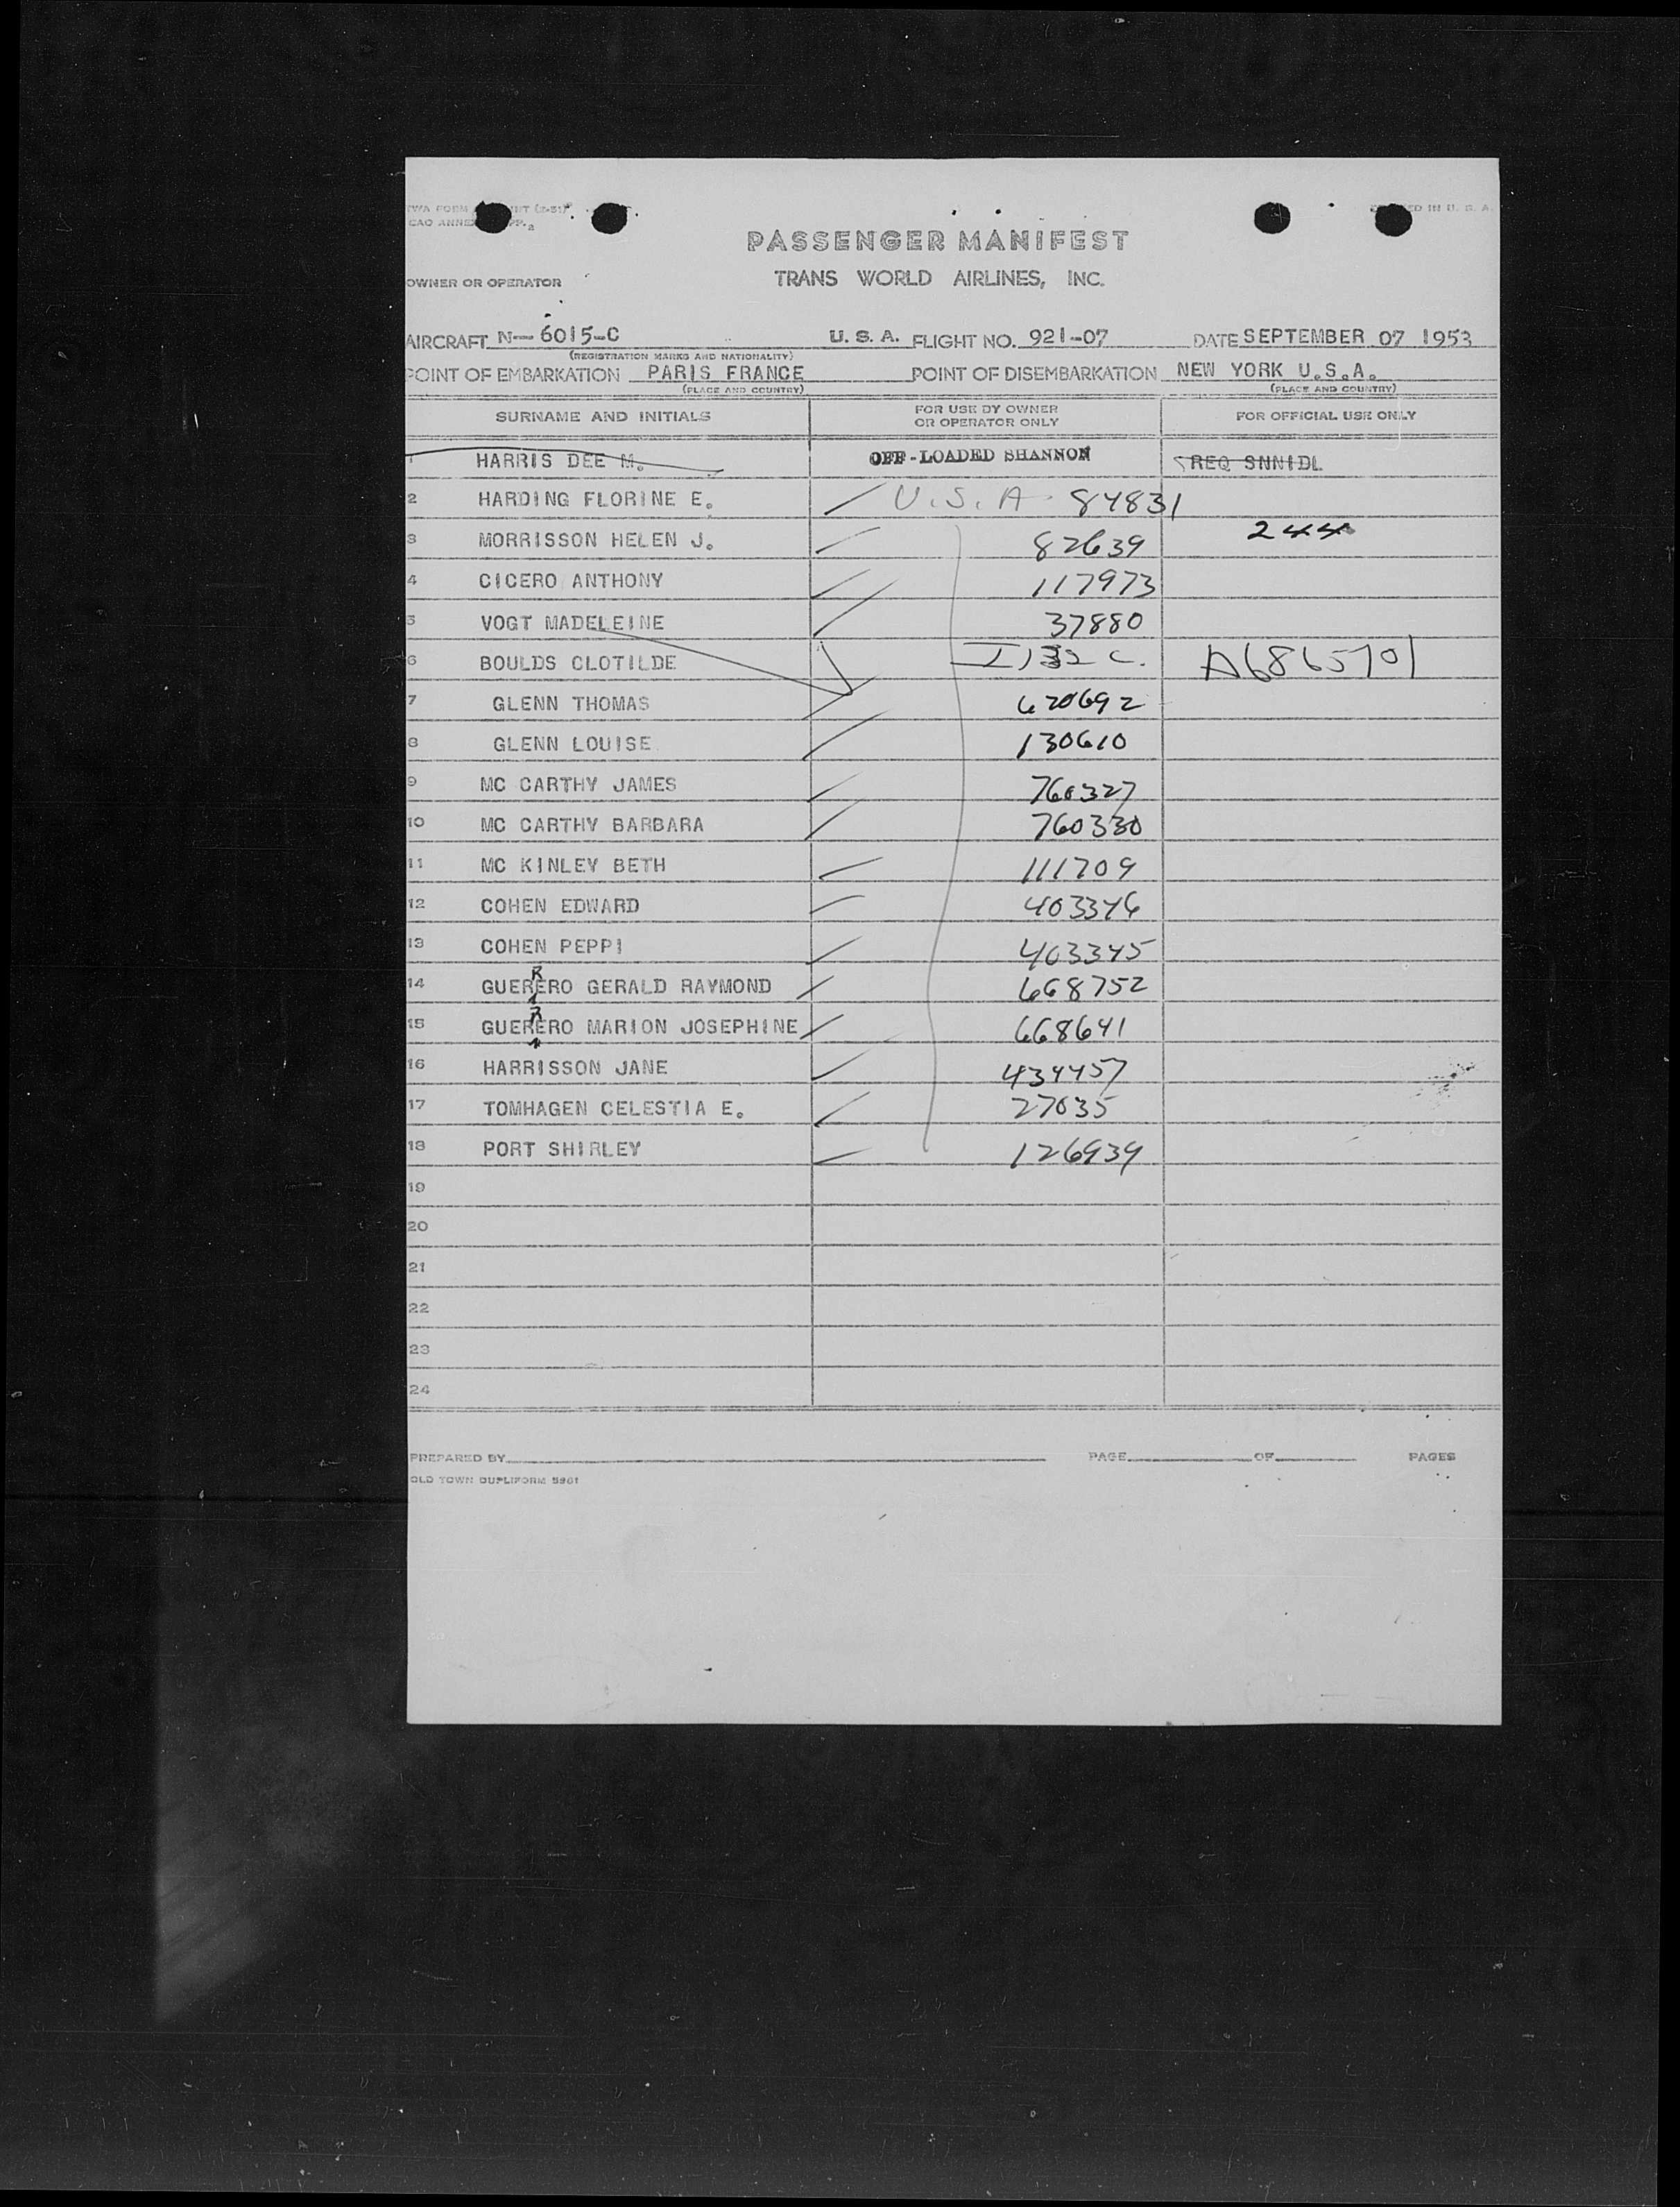 PRINTED IN U. S. A.
PASSENGER MANIFEST
TRANS WORLD AIRLINES, INC.
OWNER OR OPERATOR
AIRCRAFT N-6015-C U. S. A. FLIGHT NO. 921-07 DATE SEPTEMBER 07 1953
(REGISTRATION MARKS AND NATIONALITY)
POINT OF EMBARKATION PARIS FRANCE POINT OF DISEMBARKATION NEW YORK U.S.A.
(PLACE AND COUNTRY) (PLACE AND COUNTRY)
SURNAME AND INITIALS FOR USE BY OWNER OR OPERATOR ONLY FOR OFFICIAL USE ONLY
1 HARRIS DEE M. OFF-LOADED SHANNON REQ SNNIDL
2 HARDING FLORINE E. U.S.A. 84831
3 MORRISSON HELEN J. 82639 244
4 CICERO ANTHONY 117973
5 VOGT MADELEINE 37880
6 BOULDS CLOTILDE I132 C. A6865701
7 GLENN THOMAS 620692
8 GLENN LOUISE 130610
9 MC CARTHY JAMES 760327
10 MC CARTHY BARBARA 760330
11 MC KINLEY BETH 111709
12 COHEN EDWARD 403346
13 COHEN PEPPI 403345
14 GUERRERO GERALD RAYMOND 668752
15 GUERRERO MARION JOSEPHINE 668641
16 HARRISSON JANE 434457
17 TOMHAGEN CELESTIA E. 27035
18 PORT SHIRLEY 126939
19
20
21
22
23
24
PREPARED BY PAGE OF PAGES
OLD TOWN DUPLIFORM 5961